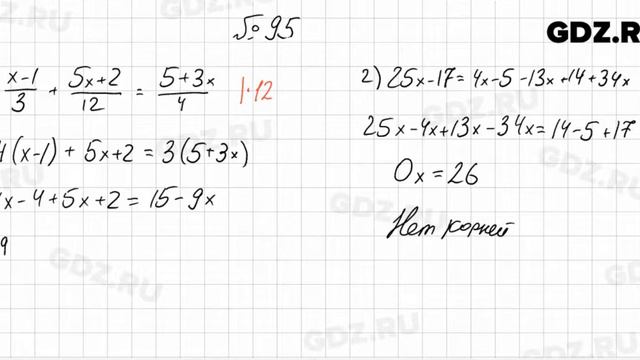 № 95
GDZ.R
x-1/3 + 5x+2/12 = 5+3x/4 |·12
4(x-1) + 5x+2 = 3(5+3x)
x-4+5x+2 = 15-9x
9
2) 25x-17 = 4x-5-13x+14+34x
25x-4x+13x-34x = 14-5+17
0x = 26
Нет корней
GDZ.RU
GDZ.RU
GDZ.RU
GDZ.RU